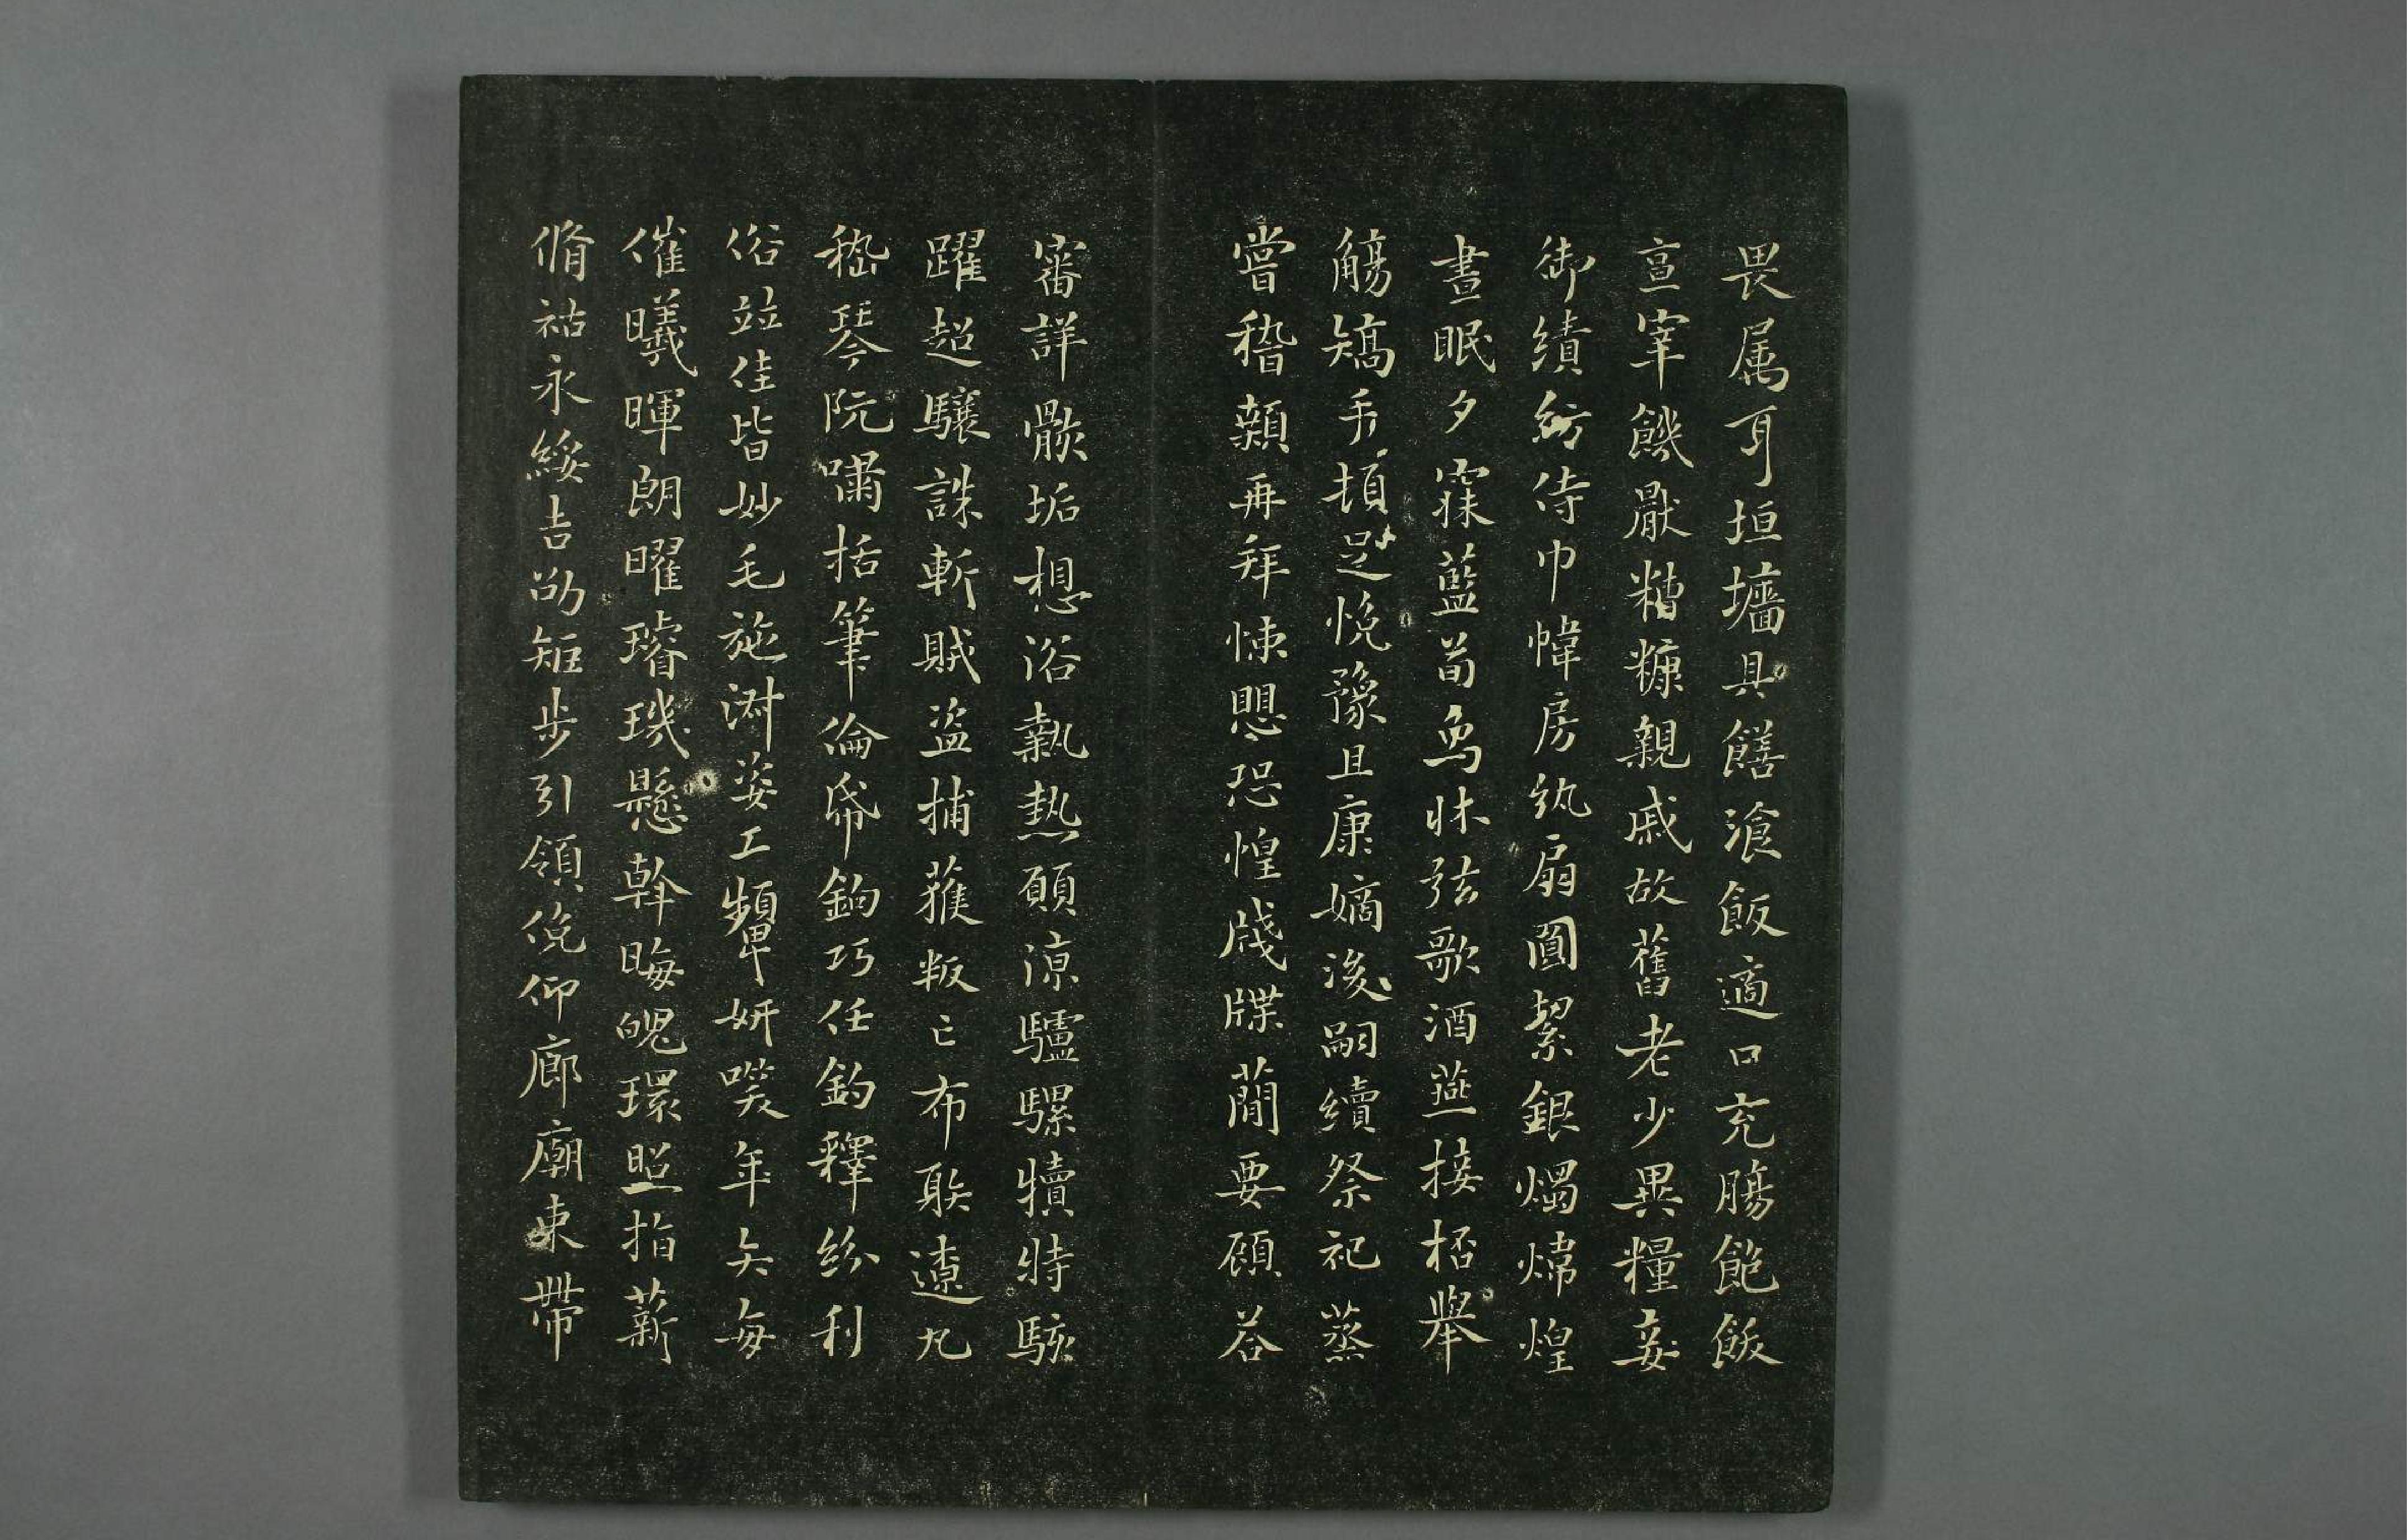 畏属耳垣墻具饍飡飯適口充腸飽飫
亯宰饑厭糟糠親戚故舊老少異糧妾
御績紡侍巾幃房紈扇圓絜銀燭煒煌
晝眠夕寐藍荀象牀弦歌酒燕接杯舉
觴矯手頓足悅豫且康嫡後嗣續祭祀蒸
嘗稽顙再拜悚懼恐惶牋牒簡要顧荅
審詳骸垢想浴執熱願涼驢騾犢特駭
躍超驤誅斬賊盜捕獲叛亡布射遼丸
嵇琴阮嘯恬筆倫帋鈞巧任釣釋紛利
俗竝佳皆妙毛施淑姿工顰妍笑年矢每
催曦暉朗曜璿璣懸斡晦魄環照指薪
脩祜永綏吉劭矩步引領俛仰廊廟束帶